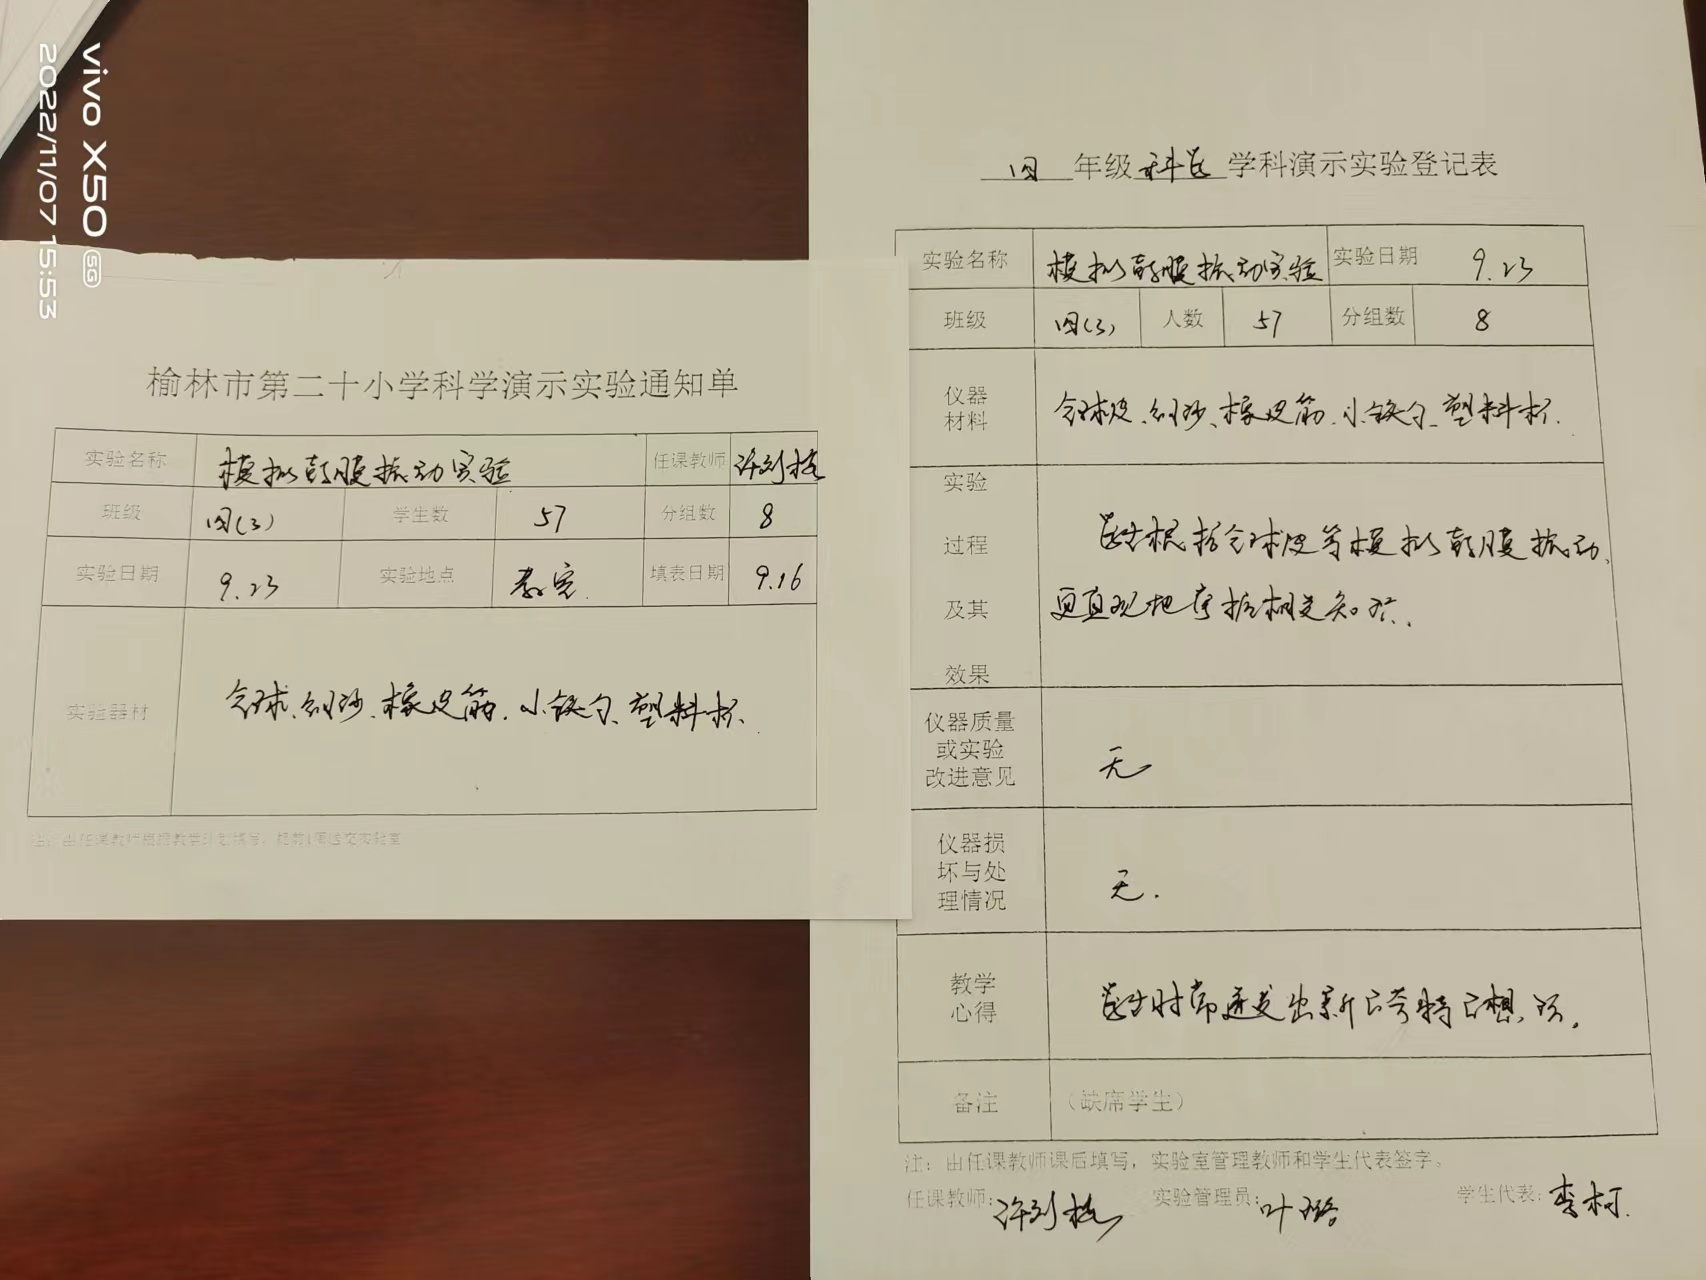 vivo X50 5G
2022/11/07 15:53
榆林市第二十小学科学演示实验通知单
实验名称 模拟鼓膜振动实验 任课教师
班级 四(3) 学生数 57 分组数 8
实验日期 9.23 实验地点 教室. 填表日期 9.16
实验器材 气球、细沙、橡皮筋、小铁勺、塑料杯、
注：由任课教师根据教学计划填写，提前1周送交实验室
四 年级 科学 学科演示实验登记表
实验名称 模拟鼓膜振动实验 实验日期 9.23
班级 四(3) 人数 57 分组数 8
仪器
材料
气球皮、细沙、橡皮筋、小铁勺、塑料杯.
实验
过程
及其
效果
学生根据气球皮等模拟鼓膜振动、
更直观地掌握相关知识.
仪器质量
或实验
改进意见
无
仪器损
坏与处
理情况
无.
教学
心得
学生时常迸发出新的奇特的想法。
备注 （缺席学生）
注：由任课教师课后填写，实验室管理教师和学生代表签字。
任课教师: 实验管理员:叶璐 学生代表:李柯.